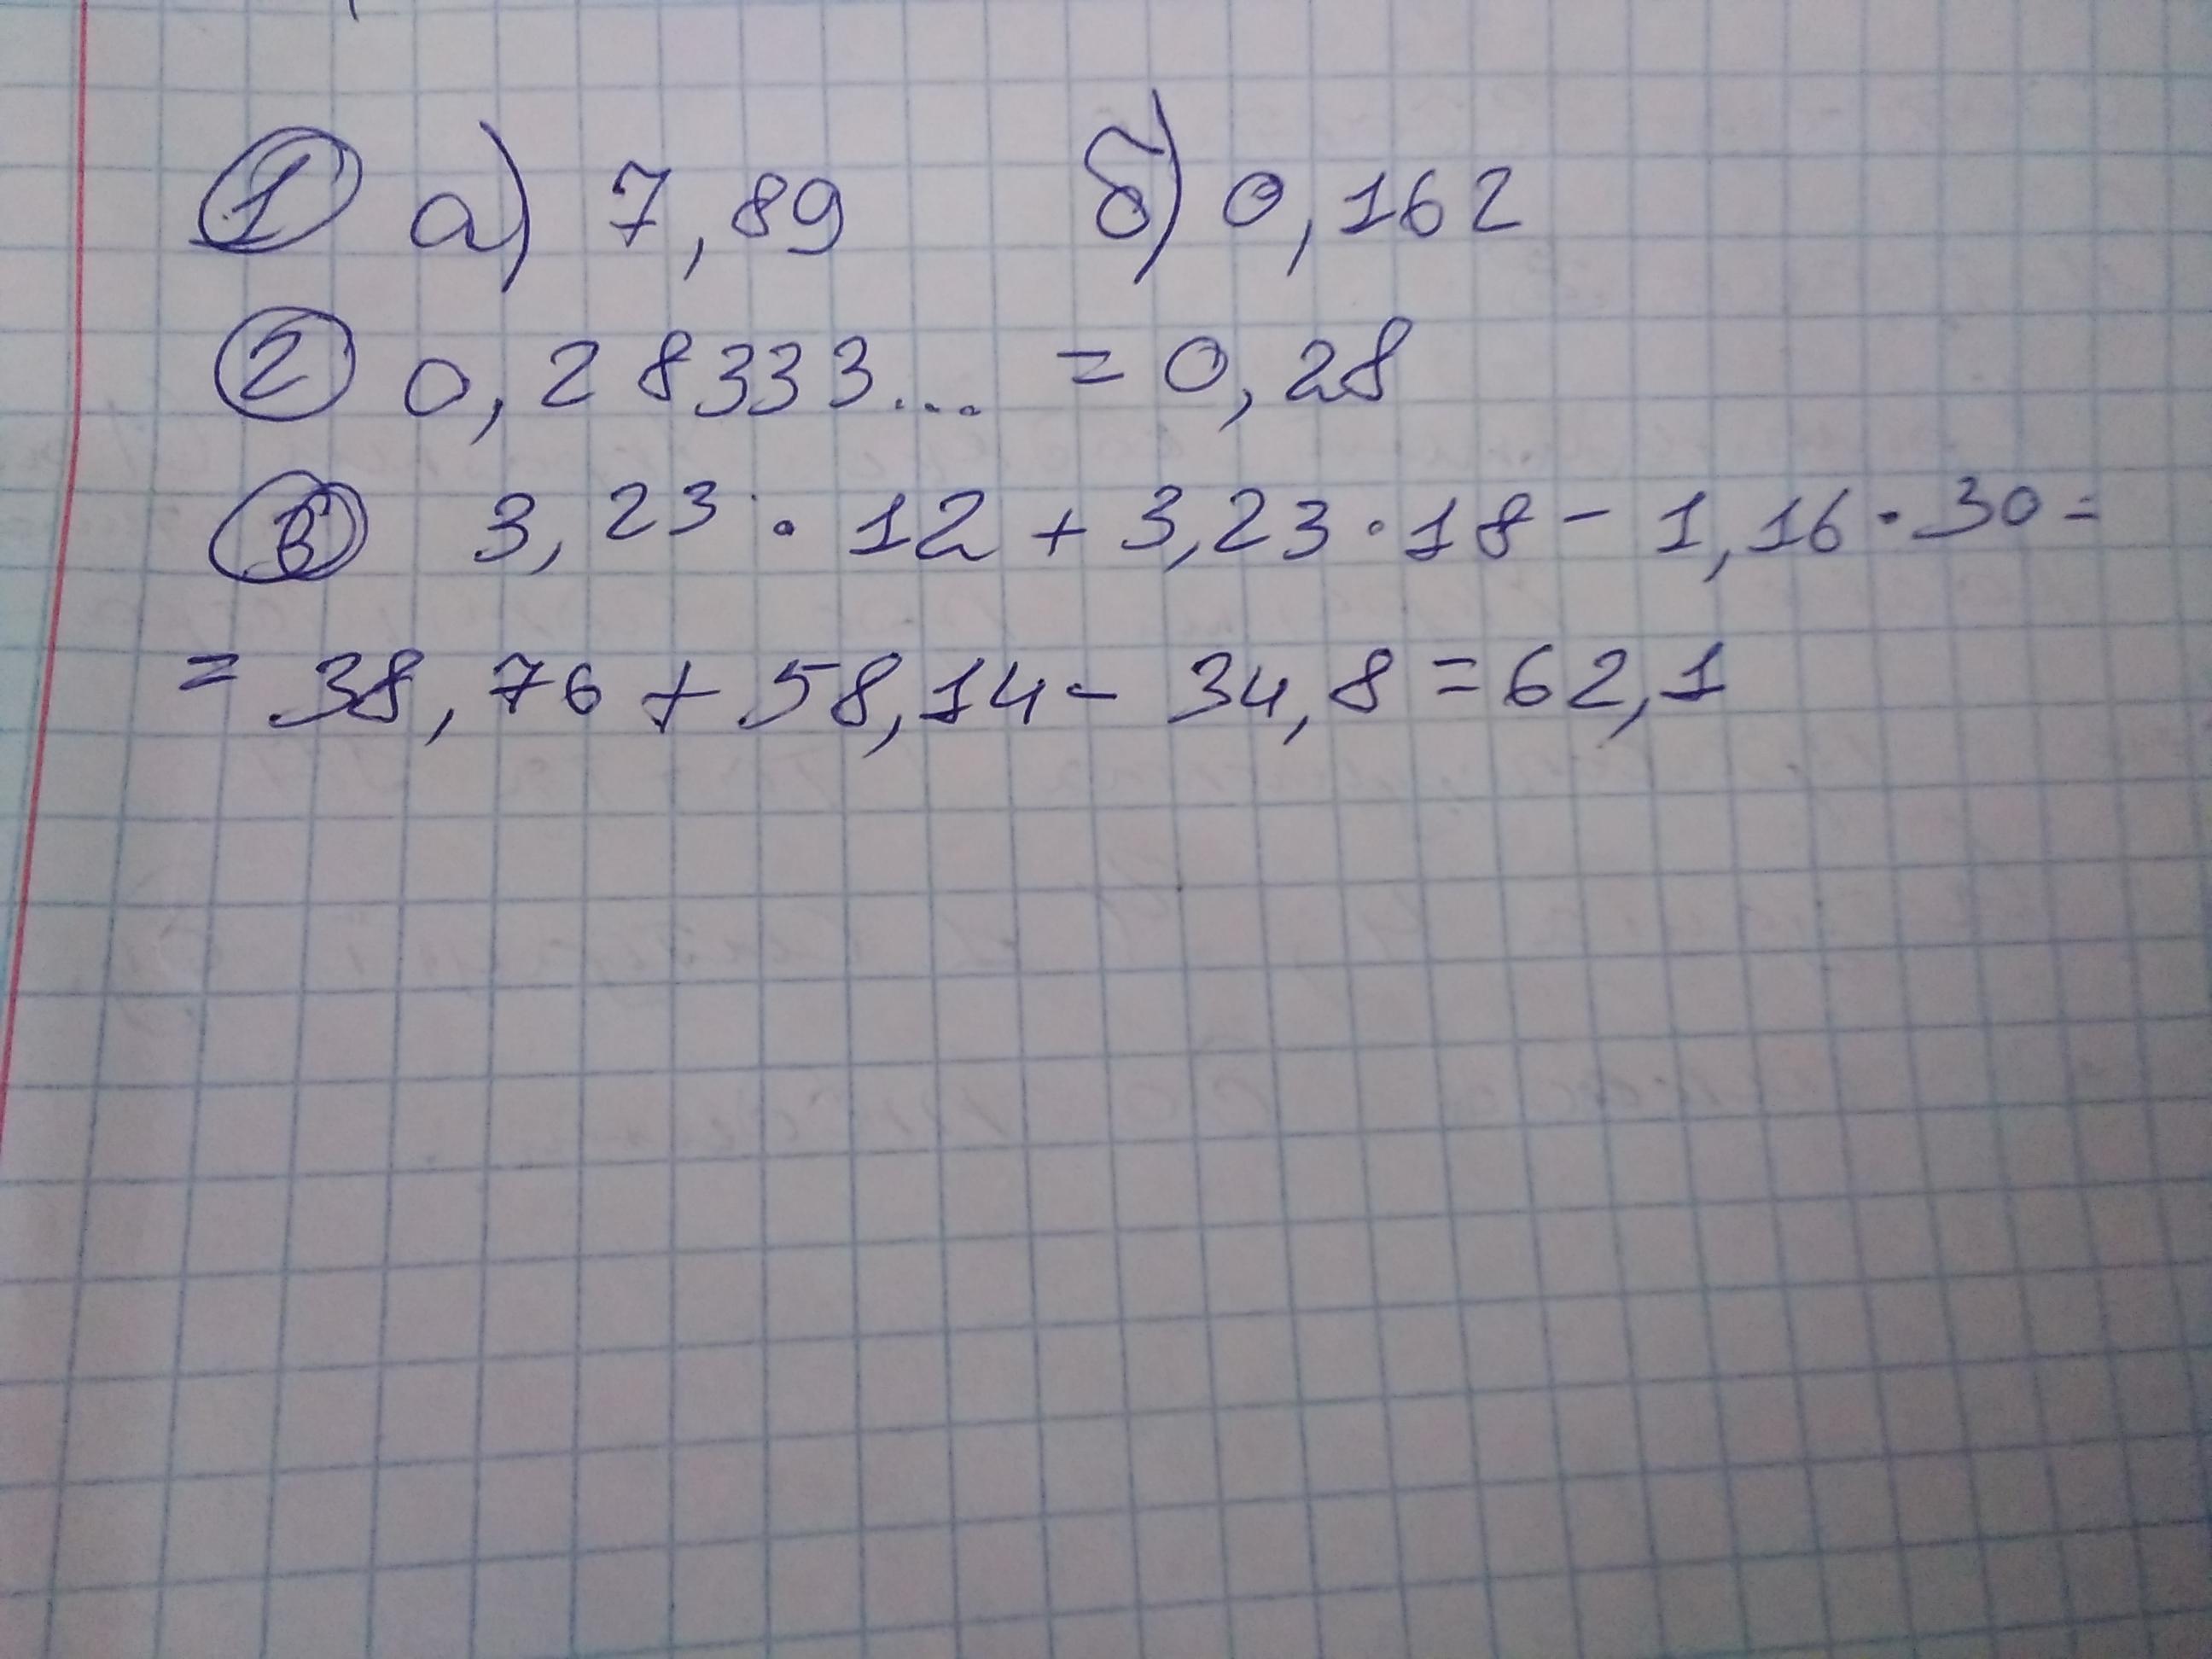 1 а) 7,89 б) 0,162
2 0,28333... = 0,28
3 3,23 · 12 + 3,23 · 18 - 1,16 · 30 =
= 38,76 + 58,14 - 34,8 = 62,1